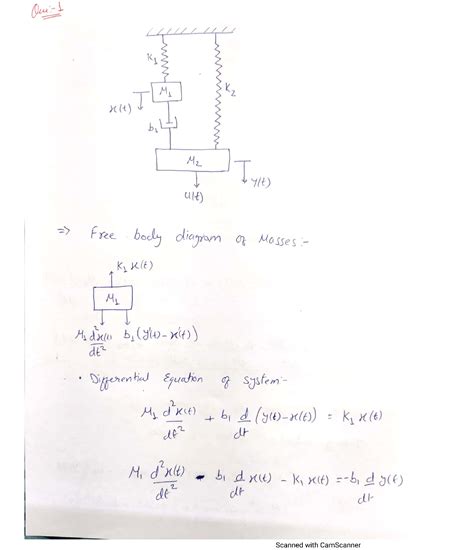 Que:-1
K₁
M₁
K₂
x(t)
b₁
M₂
y(t)
u(t)
⇒ Free body diagram of Mosses:-
K₁ x(t)
M₁
M₁ d²x(t)/dt² b₁(y'(t)-x'(t))
• Differential Equation of system:-
M₁ d²x(t)/dt² + b₁ d/dt (y(t)-x(t)) = K₁ x(t)
M₁ d²x(t)/dt² - b₁ d/dt x(t) - K₁ x(t) = -b₁ d/dt y(t)
Scanned with CamScanner